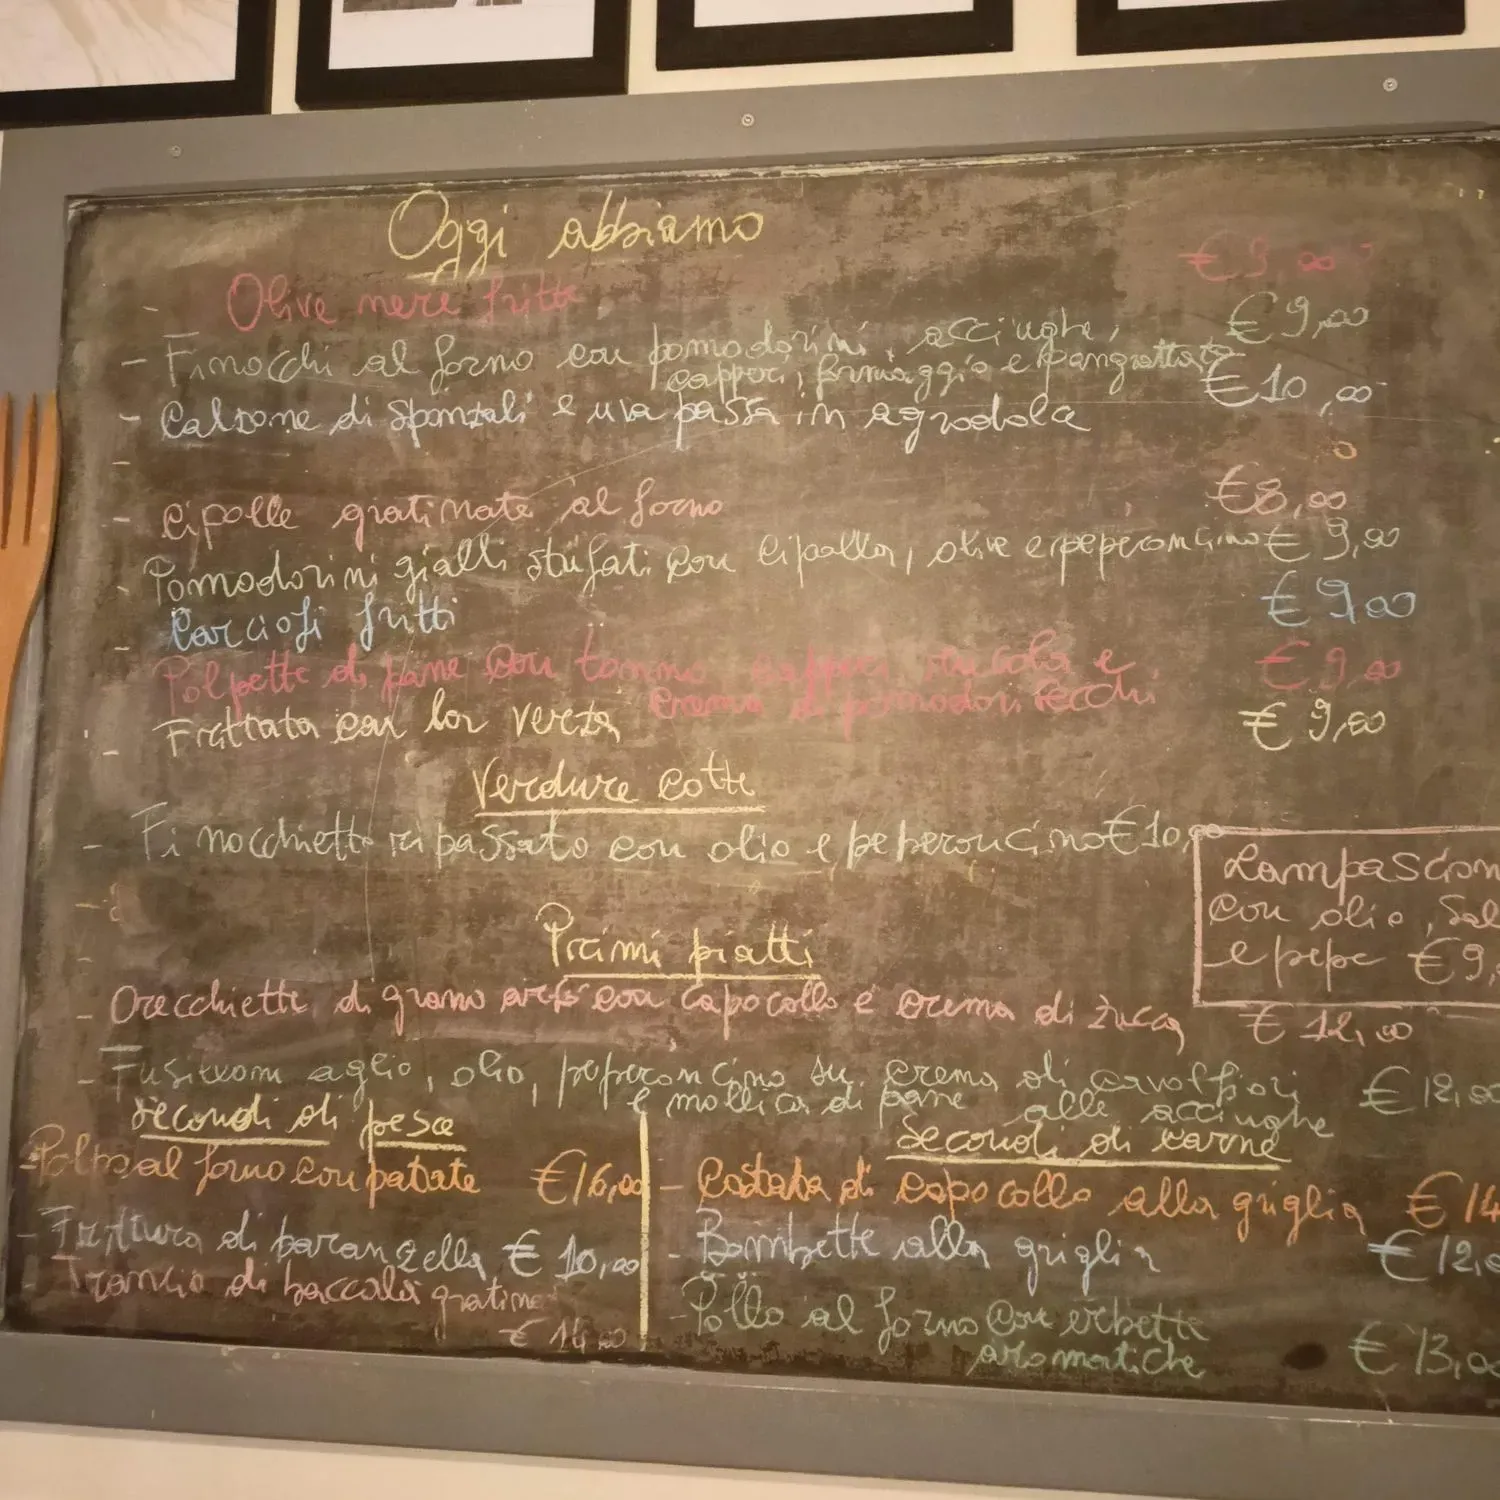 Oggi abbiamo
- Olive nere fritte € 9,00
- Finocchi al forno con pomodorini, acciughe, € 9,00
capperi, formaggio e pangrattato
- Calzone di sponzali e uva passa in agrodolce € 10,00
-
- Cipolle gratinate al forno € 8,00
- Pomodorini gialli stufati con cipolla, olive e peperoncino € 9,00
- Carciofi fritti € 9,00
Polpette di pane con tonno capperi rucola e € 9,00
crema di pomodori secchi
- Frittata con la verza € 9,00
Verdure cotte
- Finocchietto ripassato con olio e peperoncino € 10,00
-
Lampascion
con olio, sal
e pepe € 9,
Primi piatti
- Orecchiette di grano arso con capocollo e crema di zucca € 12,00
- Fusilloni aglio, olio, peperoncino su crema di cavolfiori € 12,00
e mollica di pane alle acciughe
Secondi di pesce
- Polpo al forno con patate € 16,00
- Frittura di paranzella € 10,00
- Trancio di baccalà gratinato
€ 14,00
Secondi di carne
- Costata di capocollo alla griglia € 14
- Bombette alla griglia € 12,0
- Pollo al forno con erbette
aromatiche € 13,00